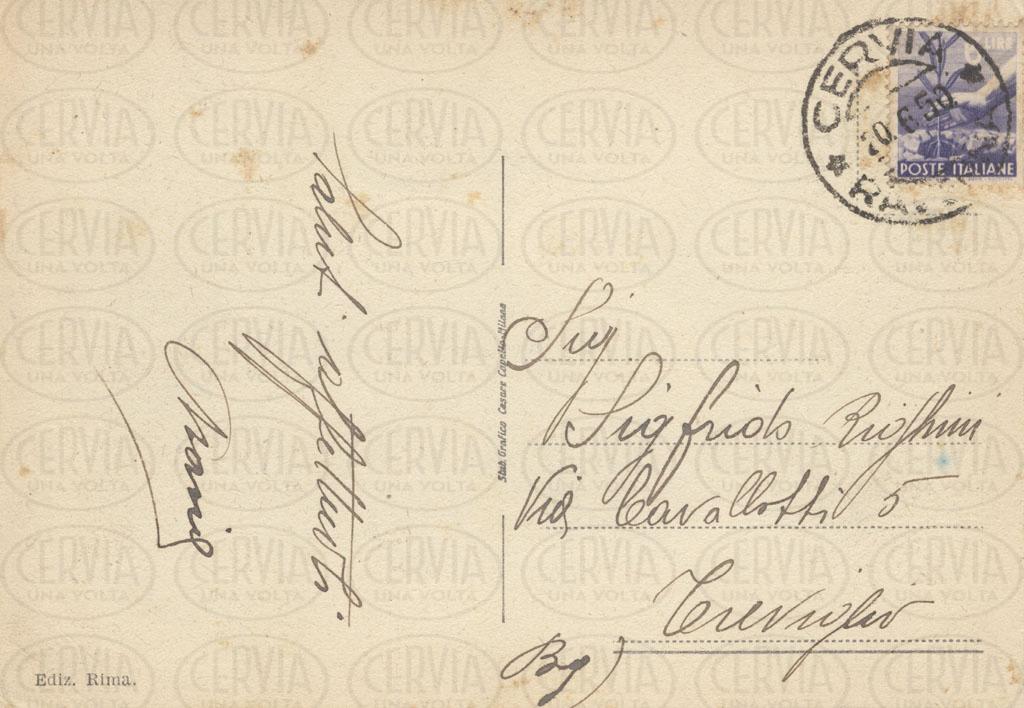 CERVIA
20.6.50
POSTE ITALIANE
LIRE
Saluti affettuosi.
Mario
Sig.
Sigfrido Righini
Via Cavallotti 5
Treviglio
(Bg)
Stab. Grafico Cesare Capello-Milano
Ediz. Rima.
CERVIA
UNA VOLTA